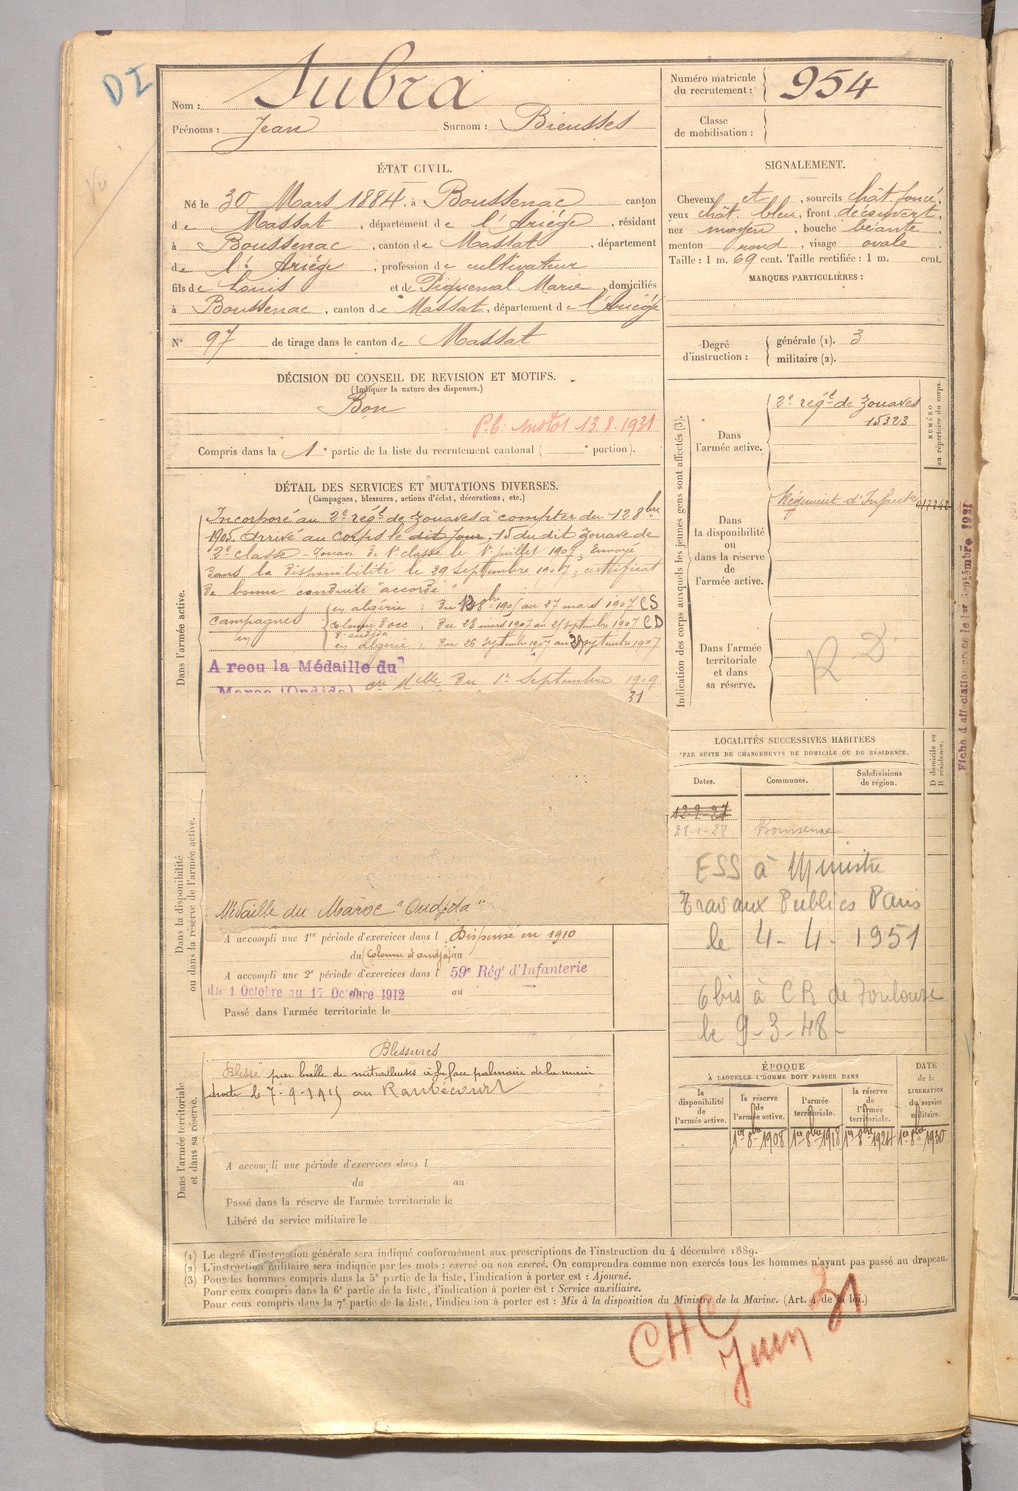 DI
Vu
Nom : Subra
Prénoms : Jean Surnom : Bieusses
Numéro matricule du recrutement : 954
Classe de mobilisation :
ÉTAT CIVIL.
Né le 30 Mars 1884, à Boussenac canton
de Massat, département de l'Ariége, résidant
à Boussenac, canton de Massat, département
de l'Ariége, profession de cultivateur
fils de Louis et de Piquemal Marie, domiciliés
à Boussenac, canton de Massat, département de l'Ariége
N° 97 de tirage dans le canton de Massat
SIGNALEMENT.
Cheveux et, sourcils chât. foncé,
yeux chât. bleu, front découvert,
nez moyen, bouche béante,
menton rond, visage ovale
Taille : 1 m. 69 cent. Taille rectifiée : 1 m. cent.
MARQUES PARTICULIÈRES :
Degré d'instruction : générale (1). 3
militaire (2).
DÉCISION DU CONSEIL DE REVISION ET MOTIFS.
(Indiquer la nature des dispenses.)
Bon
13.8.1931
Compris dans la 1e partie de la liste du recrutement cantonal ( e portion).
DÉTAIL DES SERVICES ET MUTATIONS DIVERSES.
(Campagnes, blessures, actions d'éclat, décorations, etc.)
Dans l'armée active.
Incorporé au 2e régt de zouaves à compter du 12 8bre
1905. Arrivé au corps le dit jour, 15 du dit zouave de
2e classe - Zouave de 1e classe le 1er juillet 1907, Envoyé
dans la disponibilité le 29 Septembre 1907, certificat
de bonne conduite "accordé"
Campagnes en algérie : du 8bre 1905 au 27 mars 1907 CS
colonne d'occ. d'oudjda : du 28 mars 1907 au 25 septembre 1907 CD
en en algérie : du 26 septembre 1907 au 29 septembre 1907
A reçu la Médaille du
Maroc (Oudjda) Melle du 1er Septembre 1909
31
Médaille du Maroc "Oudjda"
Dans la disponibilité ou dans la réserve de l'armée active.
A accompli une 1re période d'exercices dans l Dispensé en 1910
du (Colonne d'oudjda) au
A accompli une 2e période d'exercices dans l 59e Régt d'Infanterie
du 1 Octobre au 17 Octobre 1912 au
Passé dans l'armée territoriale le
Dans l'armée territoriale et dans sa réserve.
Blessures
Blessé par balle de mitrailleuses à la face palmaire de la main
droite le 7-9-1915 au Rambécourt
A accompli une période d'exercices dans l
du au
Passé dans la réserve de l'armée territoriale le
Libéré du service militaire le
Indication des corps auxquels les jeunes gens sont affectés (3).
NUMÉRO au répertoire du corps.
Dans l'armée active.
2e régt de Zouaves
15323
Dans la disponibilité ou dans la réserve de l'armée active.
Régiment d'Infanterie
Dans l'armée territoriale et dans sa réserve.
R D
Fiche d'affectation créée le 1er Septembre 1921
LOCALITÉS SUCCESSIVES HABITÉES
PAR SUITE DE CHANGEMENTS DE DOMICILE OU DE RÉSIDENCE.
Dates. Communes. Subdivisions de région. D domicile ou R résidence.
28-1-28 Boussenac
ESS à Ministre
Travaux Publics Paris
le 4-4-1951
6 bis à CR de Toulouse
le 9-3-48-
ÉPOQUE
À LAQUELLE L'HOMME DOIT PASSER DANS
DATE de la LIBÉRATION du service militaire.
la disponibilité de l'armée active.
la réserve de l'armée active.
l'armée territoriale.
la réserve de l'armée territoriale.
1er 8bre 1908 1er 8bre 1918 1er 8bre 1924 1er 8bre 1930
(1) Le degré d'instruction générale sera indiqué conformément aux prescriptions de l'instruction du 4 décembre 1889.
(2) L'instruction militaire sera indiquée par les mots : exercé ou non exercé. On comprendra comme non exercés tous les hommes n'ayant pas passé au drapeau.
(3) Pour les hommes compris dans la 5e partie de la liste, l'indication à porter est : Ajourné.
Pour ceux compris dans la 6e partie de la liste, l'indication à porter est : Service auxiliaire.
Pour ceux compris dans la 7e partie de la liste, l'indication à porter est : Mis à la disposition du Ministre de la Marine. (Art. 4 de la loi.)
CHC
Juin 31